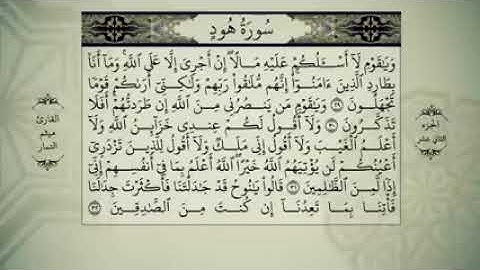 سُورَةُ هُودٍ
وَيَٰقَوْمِ لَآ أَسْـَٔلُكُمْ عَلَيْهِ مَالًا ۖ إِنْ أَجْرِىَ إِلَّا عَلَى ٱللَّهِ ۚ وَمَآ أَنَا۠
بِطَارِدِ ٱلَّذِينَ ءَامَنُوٓا۟ ۚ إِنَّهُم مُّلَٰقُوا۟ رَبِّهِمْ وَلَٰكِنِّىٓ أَرَىٰكُمْ قَوْمًا
تَجْهَلُونَ ٢٩ وَيَٰقَوْمِ مَن يَنصُرُنِى مِنَ ٱللَّهِ إِن طَرَدتُّهُمْ ۚ أَفَلَا
تَذَكَّرُونَ ٣٠ وَلَآ أَقُولُ لَكُمْ عِندِى خَزَآئِنُ ٱللَّهِ وَلَآ
أَعْلَمُ ٱلْغَيْبَ وَلَآ أَقُولُ إِنِّى مَلَكٌ وَلَآ أَقُولُ لِلَّذِينَ تَزْدَرِىٓ
أَعْيُنُكُمْ لَن يُؤْتِيَهُمُ ٱللَّهُ خَيْرًا ۖ ٱللَّهُ أَعْلَمُ بِمَا فِىٓ أَنفُسِهِمْ ۖ إِنِّىٓ
إِذًا لَّمِنَ ٱلظَّٰلِمِينَ ٣١ قَالُوا۟ يَٰنُوحُ قَدْ جَٰدَلْتَنَا فَأَكْثَرْتَ جِدَٰلَنَا
فَأْتِنَا بِمَا تَعِدُنَآ إِن كُنتَ مِنَ ٱلصَّٰدِقِينَ ٣٢
الجزء
الثاني عشر
القارئ
ميثم
التمار